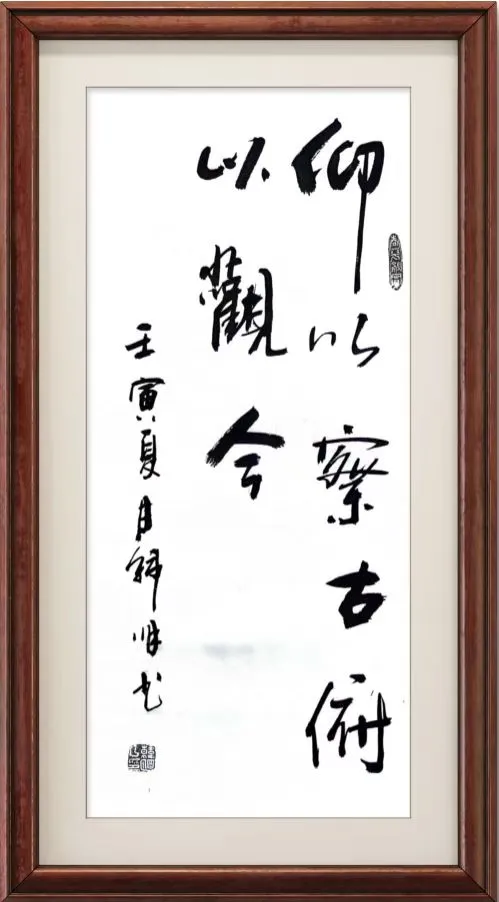 仰以察古俯
以觀今
壬寅夏月韓順书